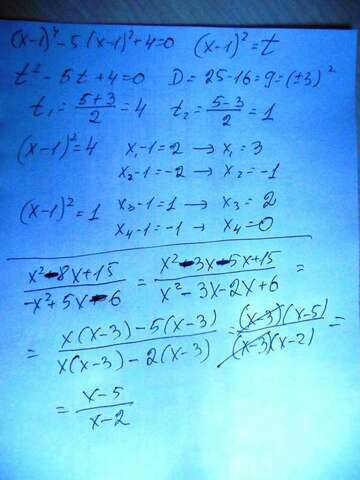 (x-1)⁴-5(x-1)²+4=0 (x-1)²=t
t²-5t+4=0 D=25-16=9=(±3)²
t₁=(5+3)/2=4 t₂=(5-3)/2=1
(x-1)²=4 x₁-1=2 → x₁=3
x₂-1=-2 → x₂=-1
(x-1)²=1 x₃-1=1 → x₃=2
x₄-1=-1 → x₄=0
(x²-8x+15)/(-x²+5x-6) = (x²-3x-5x+15)/(x²-3x-2x+6) =
= (x(x-3)-5(x-3))/(x(x-3)-2(x-3)) = ((x-3)(x-5))/((x-3)(x-2)) =
= (x-5)/(x-2)